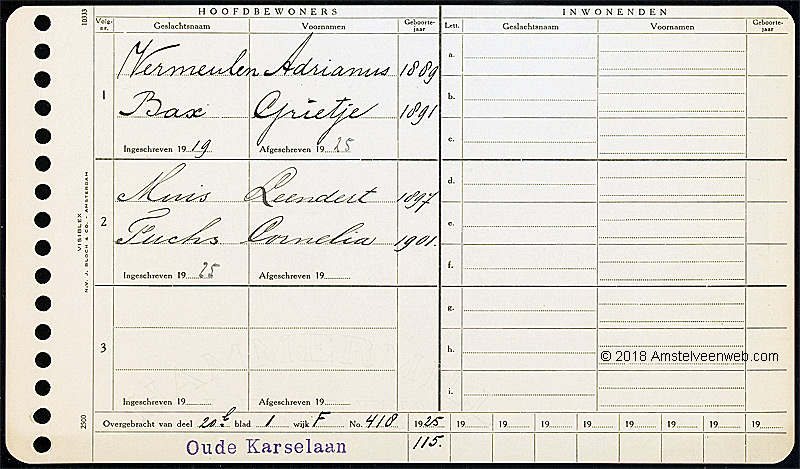 HOOFDBEWONERS INWONENDEN
Volg-nr. Geslachtsnaam Voornamen Geboorte-jaar Lett. Geslachtsnaam Voornamen Geboorte-jaar
10333
1
Vermeulen Adrianus 1889 a.
Bax Grietje 1891 b.
c.
Ingeschreven 1919 Afgeschreven 1925
2
Muis Leendert 1897 d.
Fuchs Cornelia 1901. e.
Ingeschreven 1925 Afgeschreven 19 f.
VISIBLEX
N.V. J. BLOCH & CO. - AMSTERDAM
3
g.
h.
© 2018 Amstelveenweb.com
Ingeschreven 19 Afgeschreven 19 i.
2500
Overgebracht van deel 20 blad 1 wijk F No. 418 1925 19 19 19 19 19 19 19 19
Oude Karselaan 115.